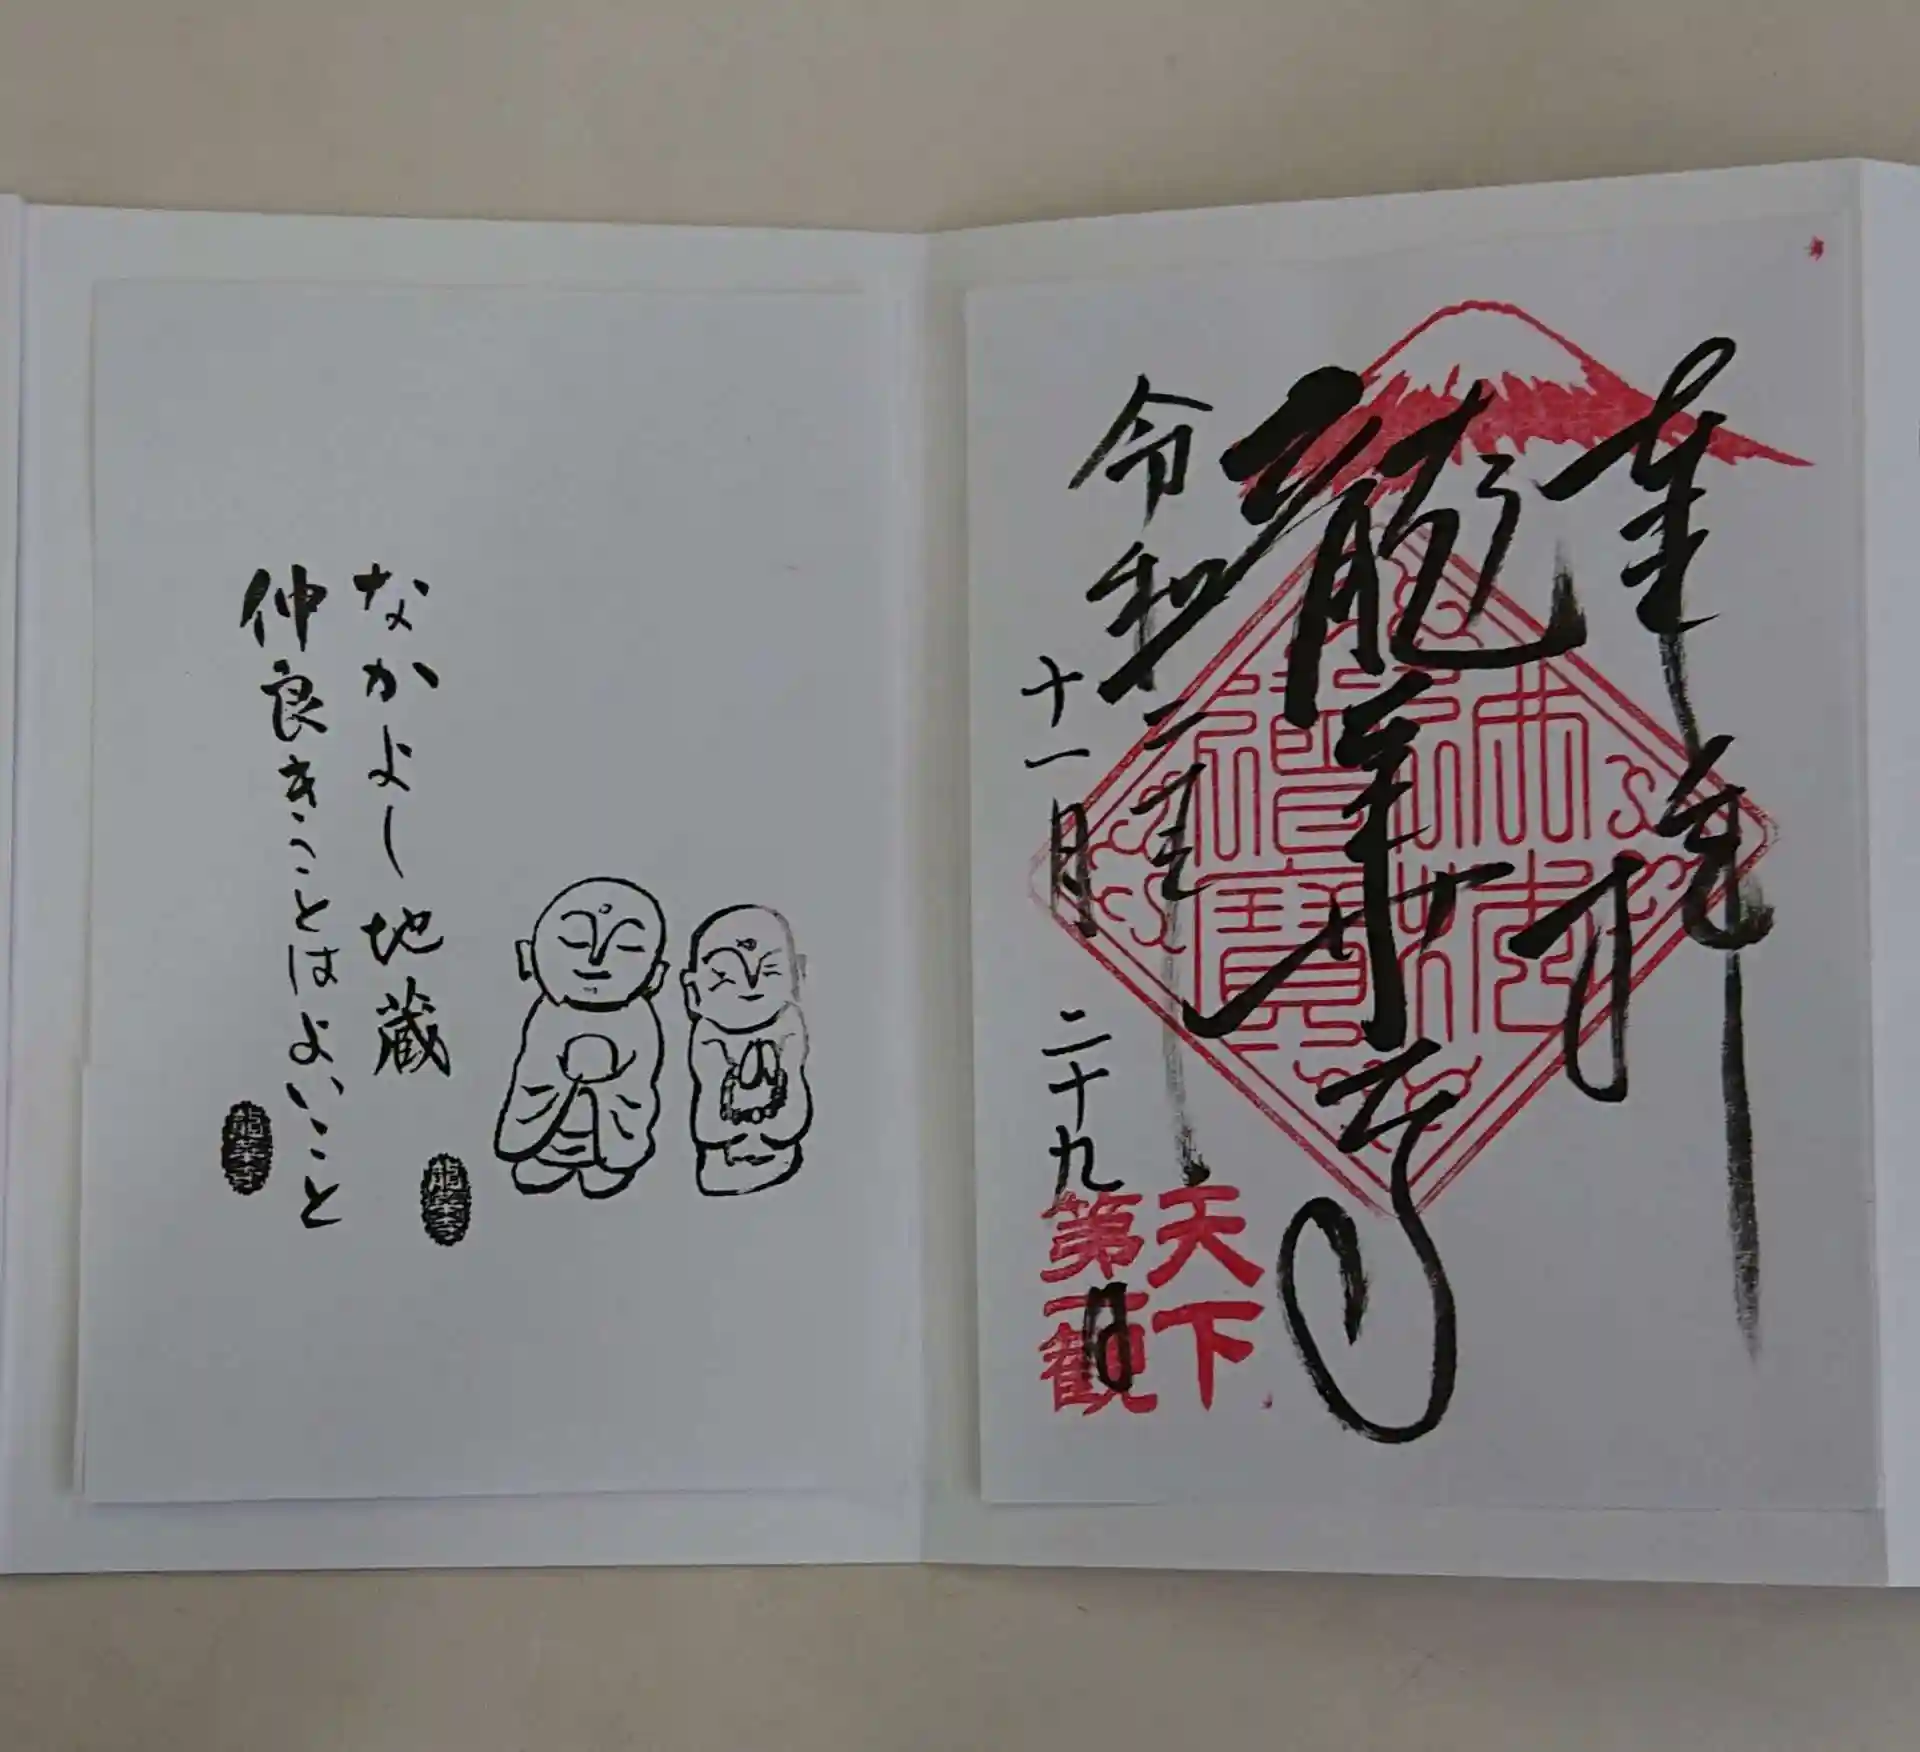 奉拝
龍華寺
令和二年
十一月二十九日
佛法
僧寶
天下
第一観
なかよし地蔵
仲良きことはよいこと
龍華寺
龍華寺